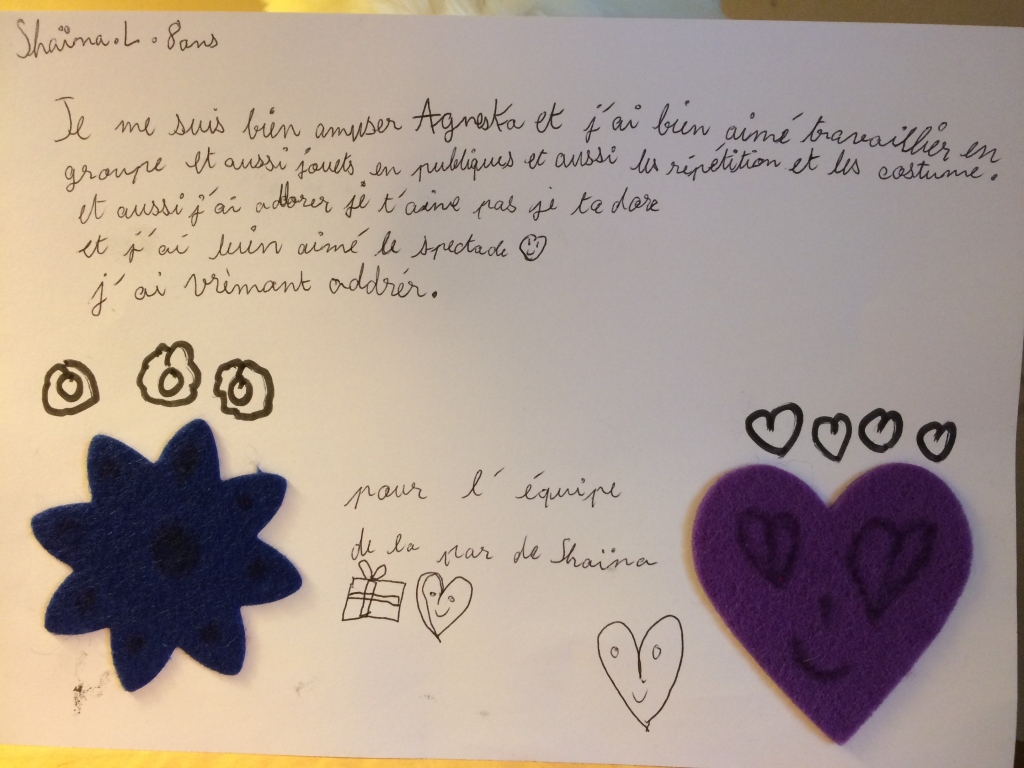 Shaïna.L. 8ans
Je me suis bien amuser Agneska et j'ai bien aimé travaillier en
groupe et aussi jouets en publiques et aussi les répétition et les costume.
et aussi j'ai addorer je t'aime pas je ta dore
et j'ai bien aimé le spectacle
j'ai vrèmant addrér.
pour l'équipe
de la par de Shaïna